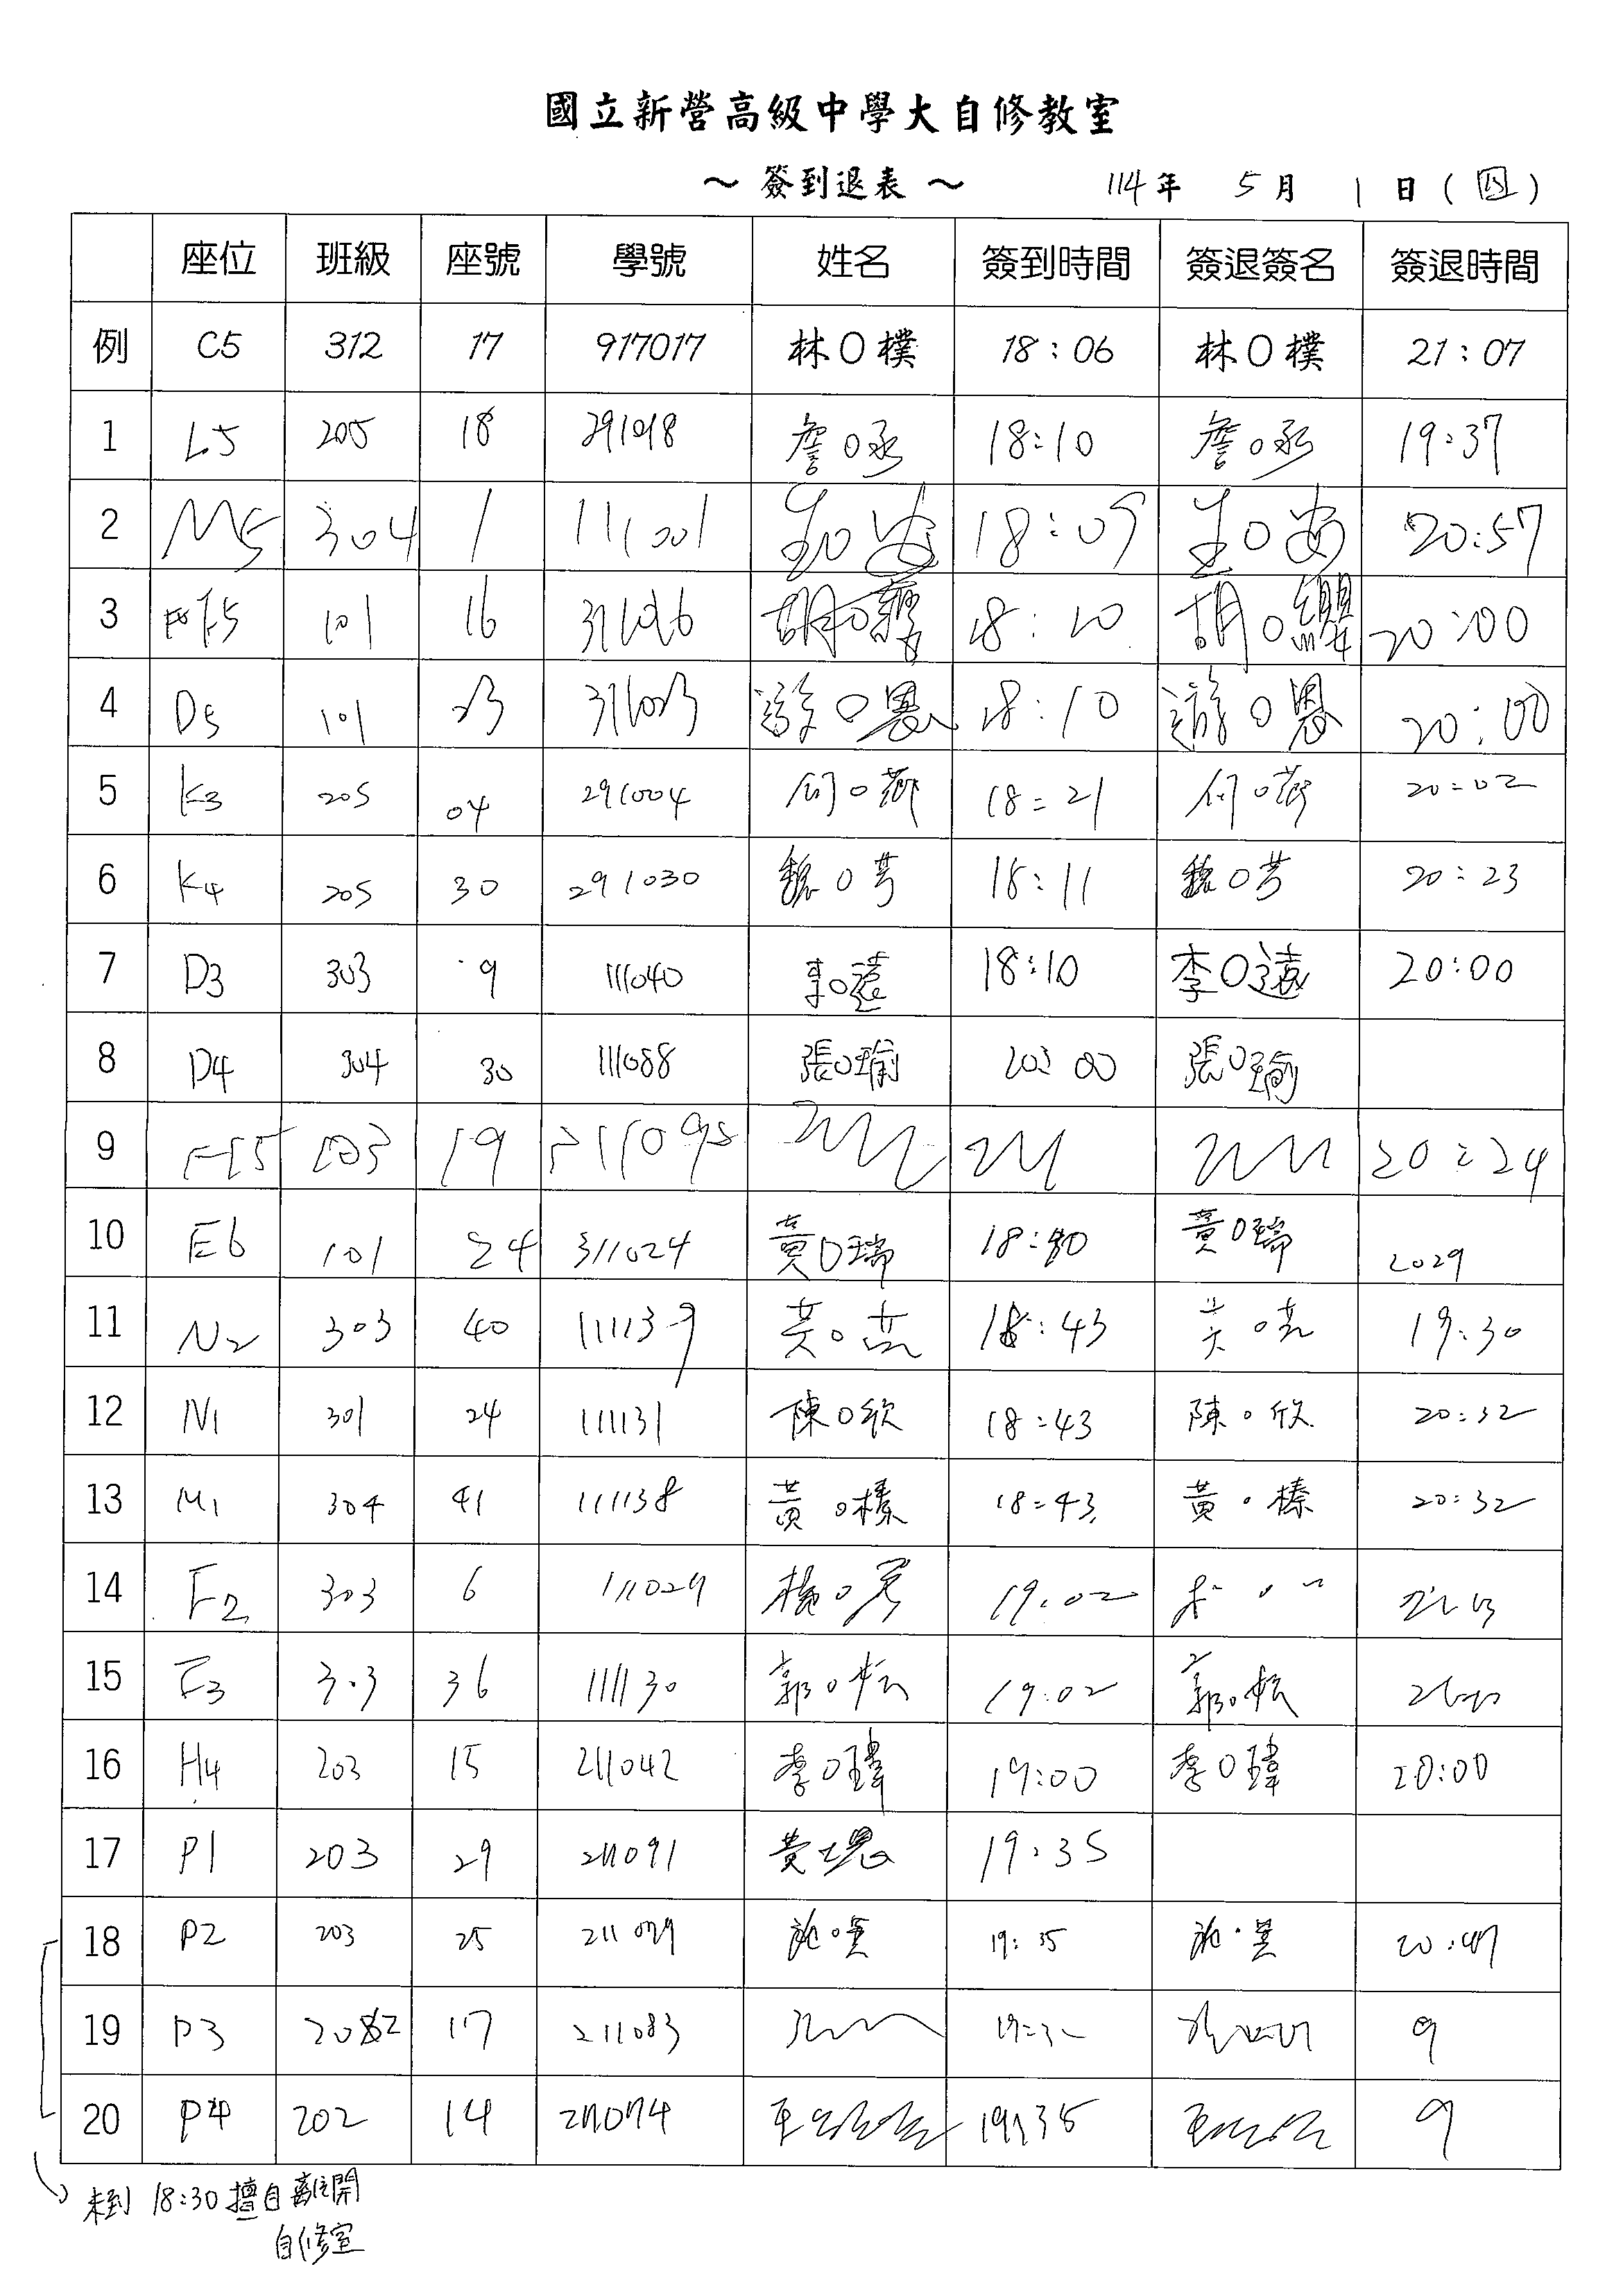 國立新營高級中學大自修教室
～ 簽到退表 ～ 114年 5月 1日(四)
座位 班級 座號 學號 姓名 簽到時間 簽退簽名 簽退時間
例 C5 312 17 917017 林O樸 18:06 林O樸 21:07
1 L5 205 18 291018 詹O承 18:10 詹O承 19:37
2 M5 304 1 111001 王O安 18:09 王O安 20:57
3 F5 101 16 311016 胡O纓 18:10 胡O纓 20:00
4 D5 101 23 311023 游O恩 18:10 游O恩 20:00
5 K3 205 04 291004 何O 18:21 何O 20:02
6 K4 205 30 291030 魏O芳 18:11 魏O芳 20:23
7 D3 303 9 111040 李O遠 18:10 李O遠 20:00
8 D4 304 30 111088 張O瑜 20:00 張O瑜
9 103 19 20:24
10 E6 101 24 311024 黃O瑞 黃O瑞 2029
11 N2 303 40 111139 黃O 18:43 19:30
12 N1 301 24 111131 陳O欣 18:43 陳O欣 20:32
13 M1 304 41 111138 黃O榛 18:43 黃O榛 20:32
14 F2 303 6 111029 楊O君 19:02
15 F3 303 36 111130 郭O妘 19:02 郭O妘
16 H4 203 15 211042 李O瑋 19:00 李O瑋 20:00
17 P1 203 29 211091 19:35
18 P2 203 25 211079 施O昱 19:35 施O昱 20:47
19 P3 202 17 211083 9
20 P4 202 14 211074 王 19:35 王 9
未到 18:30 擅自離開
自修室